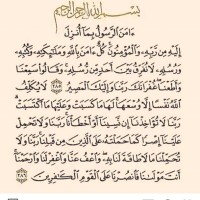 بِسْمِ اللَّهِ الرَّحْمَٰنِ الرَّحِيمِ
ءَامَنَ الرَّسُولُ بِمَا أُنزِلَ
إِلَيْهِ مِن رَّبِّهِ وَالْمُؤْمِنُونَ كُلٌّ ءَامَنَ بِاللَّهِ وَمَلَٰئِكَتِهِ وَكُتُبِهِ
وَرُسُلِهِ لَا نُفَرِّقُ بَيْنَ أَحَدٍ مِّن رُّسُلِهِ وَقَالُوا سَمِعْنَا
وَأَطَعْنَا غُفْرَانَكَ رَبَّنَا وَإِلَيْكَ الْمَصِيرُ ٢٨٥ لَا يُكَلِّفُ
اللَّهُ نَفْسًا إِلَّا وُسْعَهَا لَهَا مَا كَسَبَتْ وَعَلَيْهَا مَا اكْتَسَبَتْ
رَبَّنَا لَا تُؤَاخِذْنَا إِن نَّسِينَا أَوْ أَخْطَأْنَا رَبَّنَا وَلَا تَحْمِلْ
عَلَيْنَا إِصْرًا كَمَا حَمَلْتَهُ عَلَى الَّذِينَ مِن قَبْلِنَا رَبَّنَا وَلَا
تُحَمِّلْنَا مَا لَا طَاقَةَ لَنَا بِهِ وَاعْفُ عَنَّا وَاغْفِرْ لَنَا وَارْحَمْنَا
أَنتَ مَوْلَىٰنَا فَانصُرْنَا عَلَى الْقَوْمِ الْكَٰفِرِينَ ٢٨٦